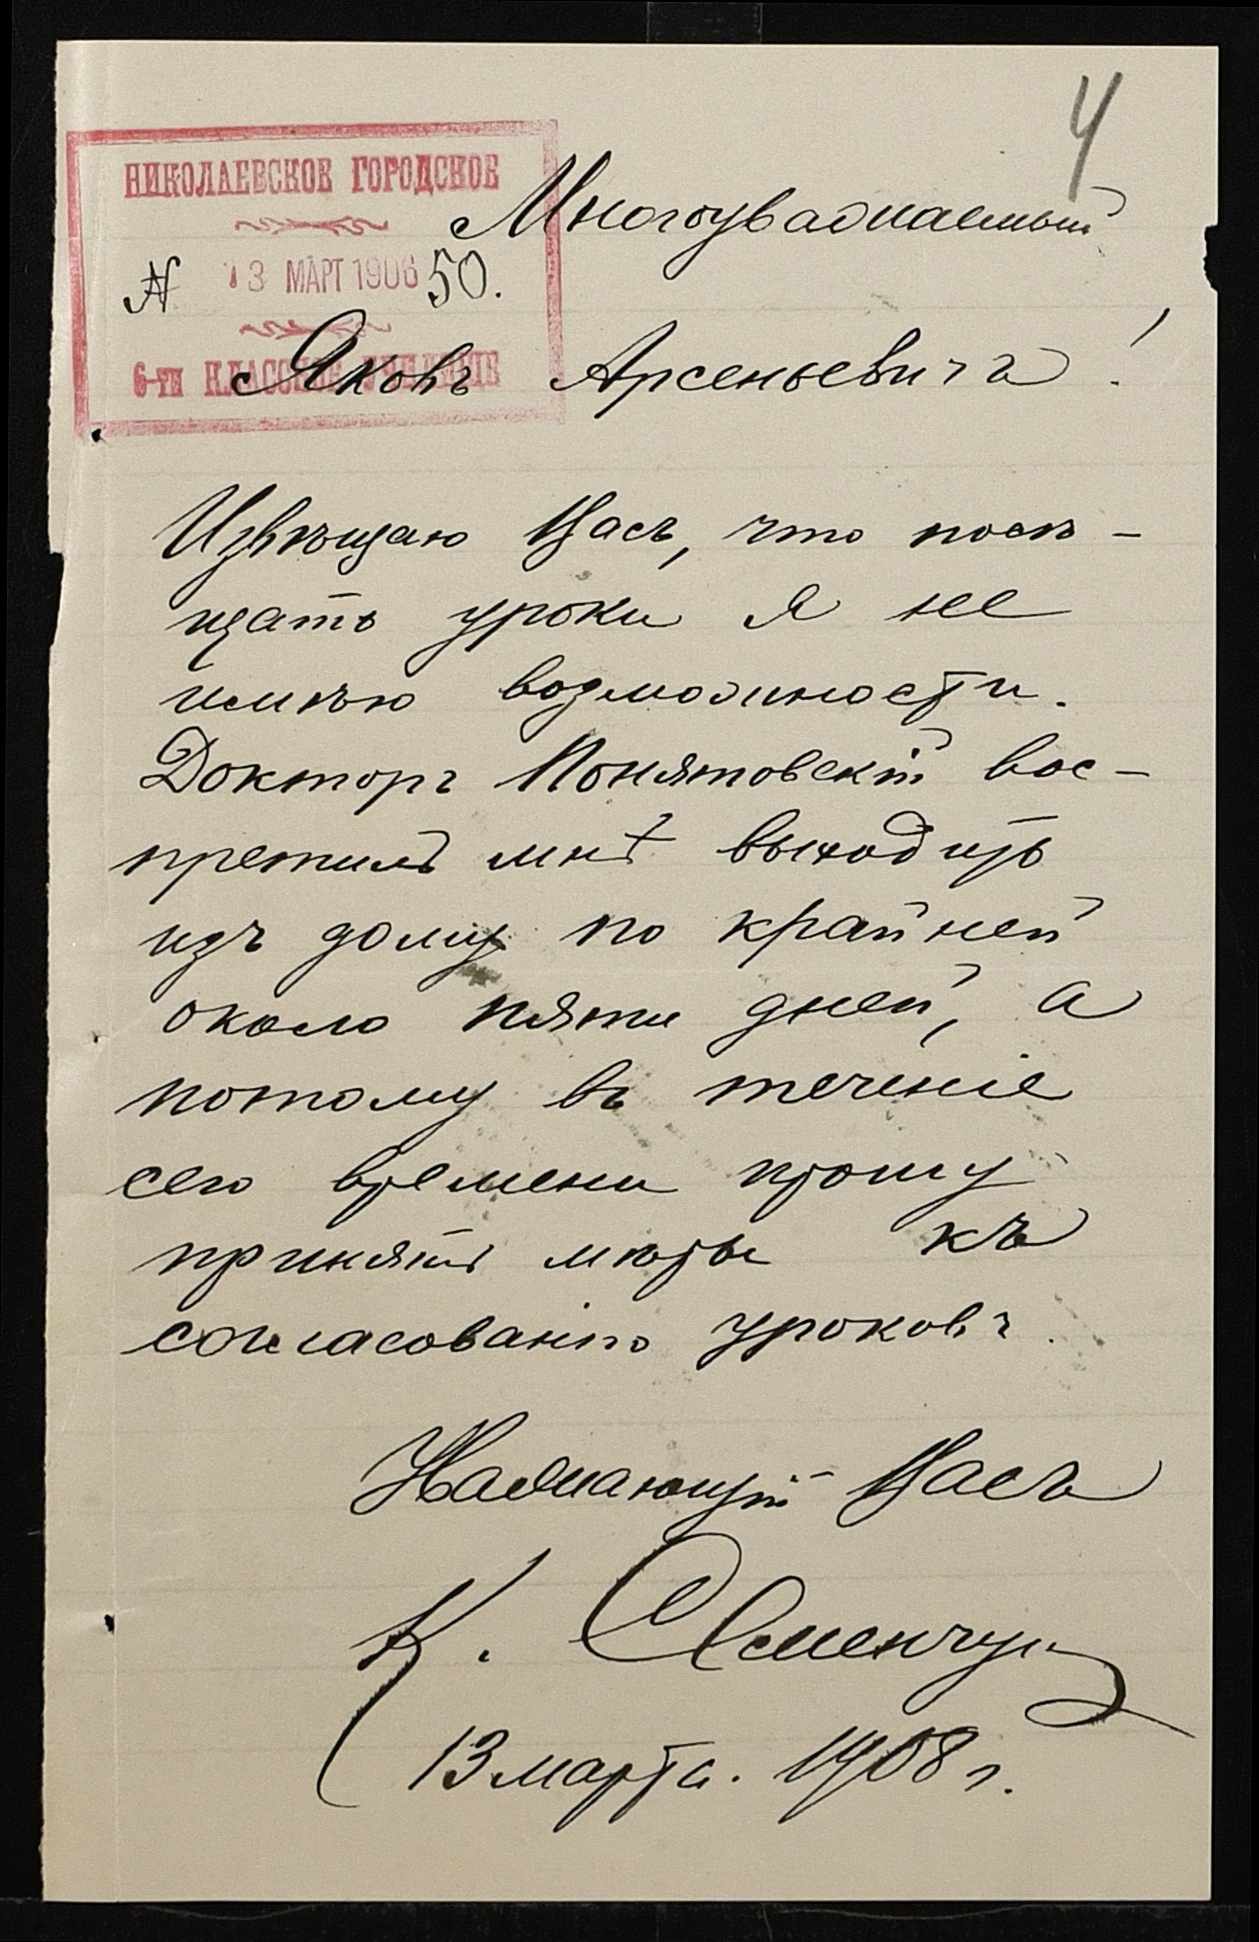 4
НИКОЛАЕВСКОЕ ГОРОДСКОЕ
№ 13 МАРТ 1908 50.
6-ти КЛАССНОЕ УЧИЛИЩЕ
Многоуважаемый
Яковъ Арсеньевичъ!
Извѣщаю Васъ, что посѣ-
щать уроки я не
имѣю возможности.
Докторъ Понятовскій вос-
претилъ мнѣ выходить
изъ дому по крайней
около пяти дней, а
потому въ теченіе
сего времени прошу
принять мѣры къ
согласованію уроковъ.
Уважающій Васъ
К. Семенчук
13 марта. 1908 г.